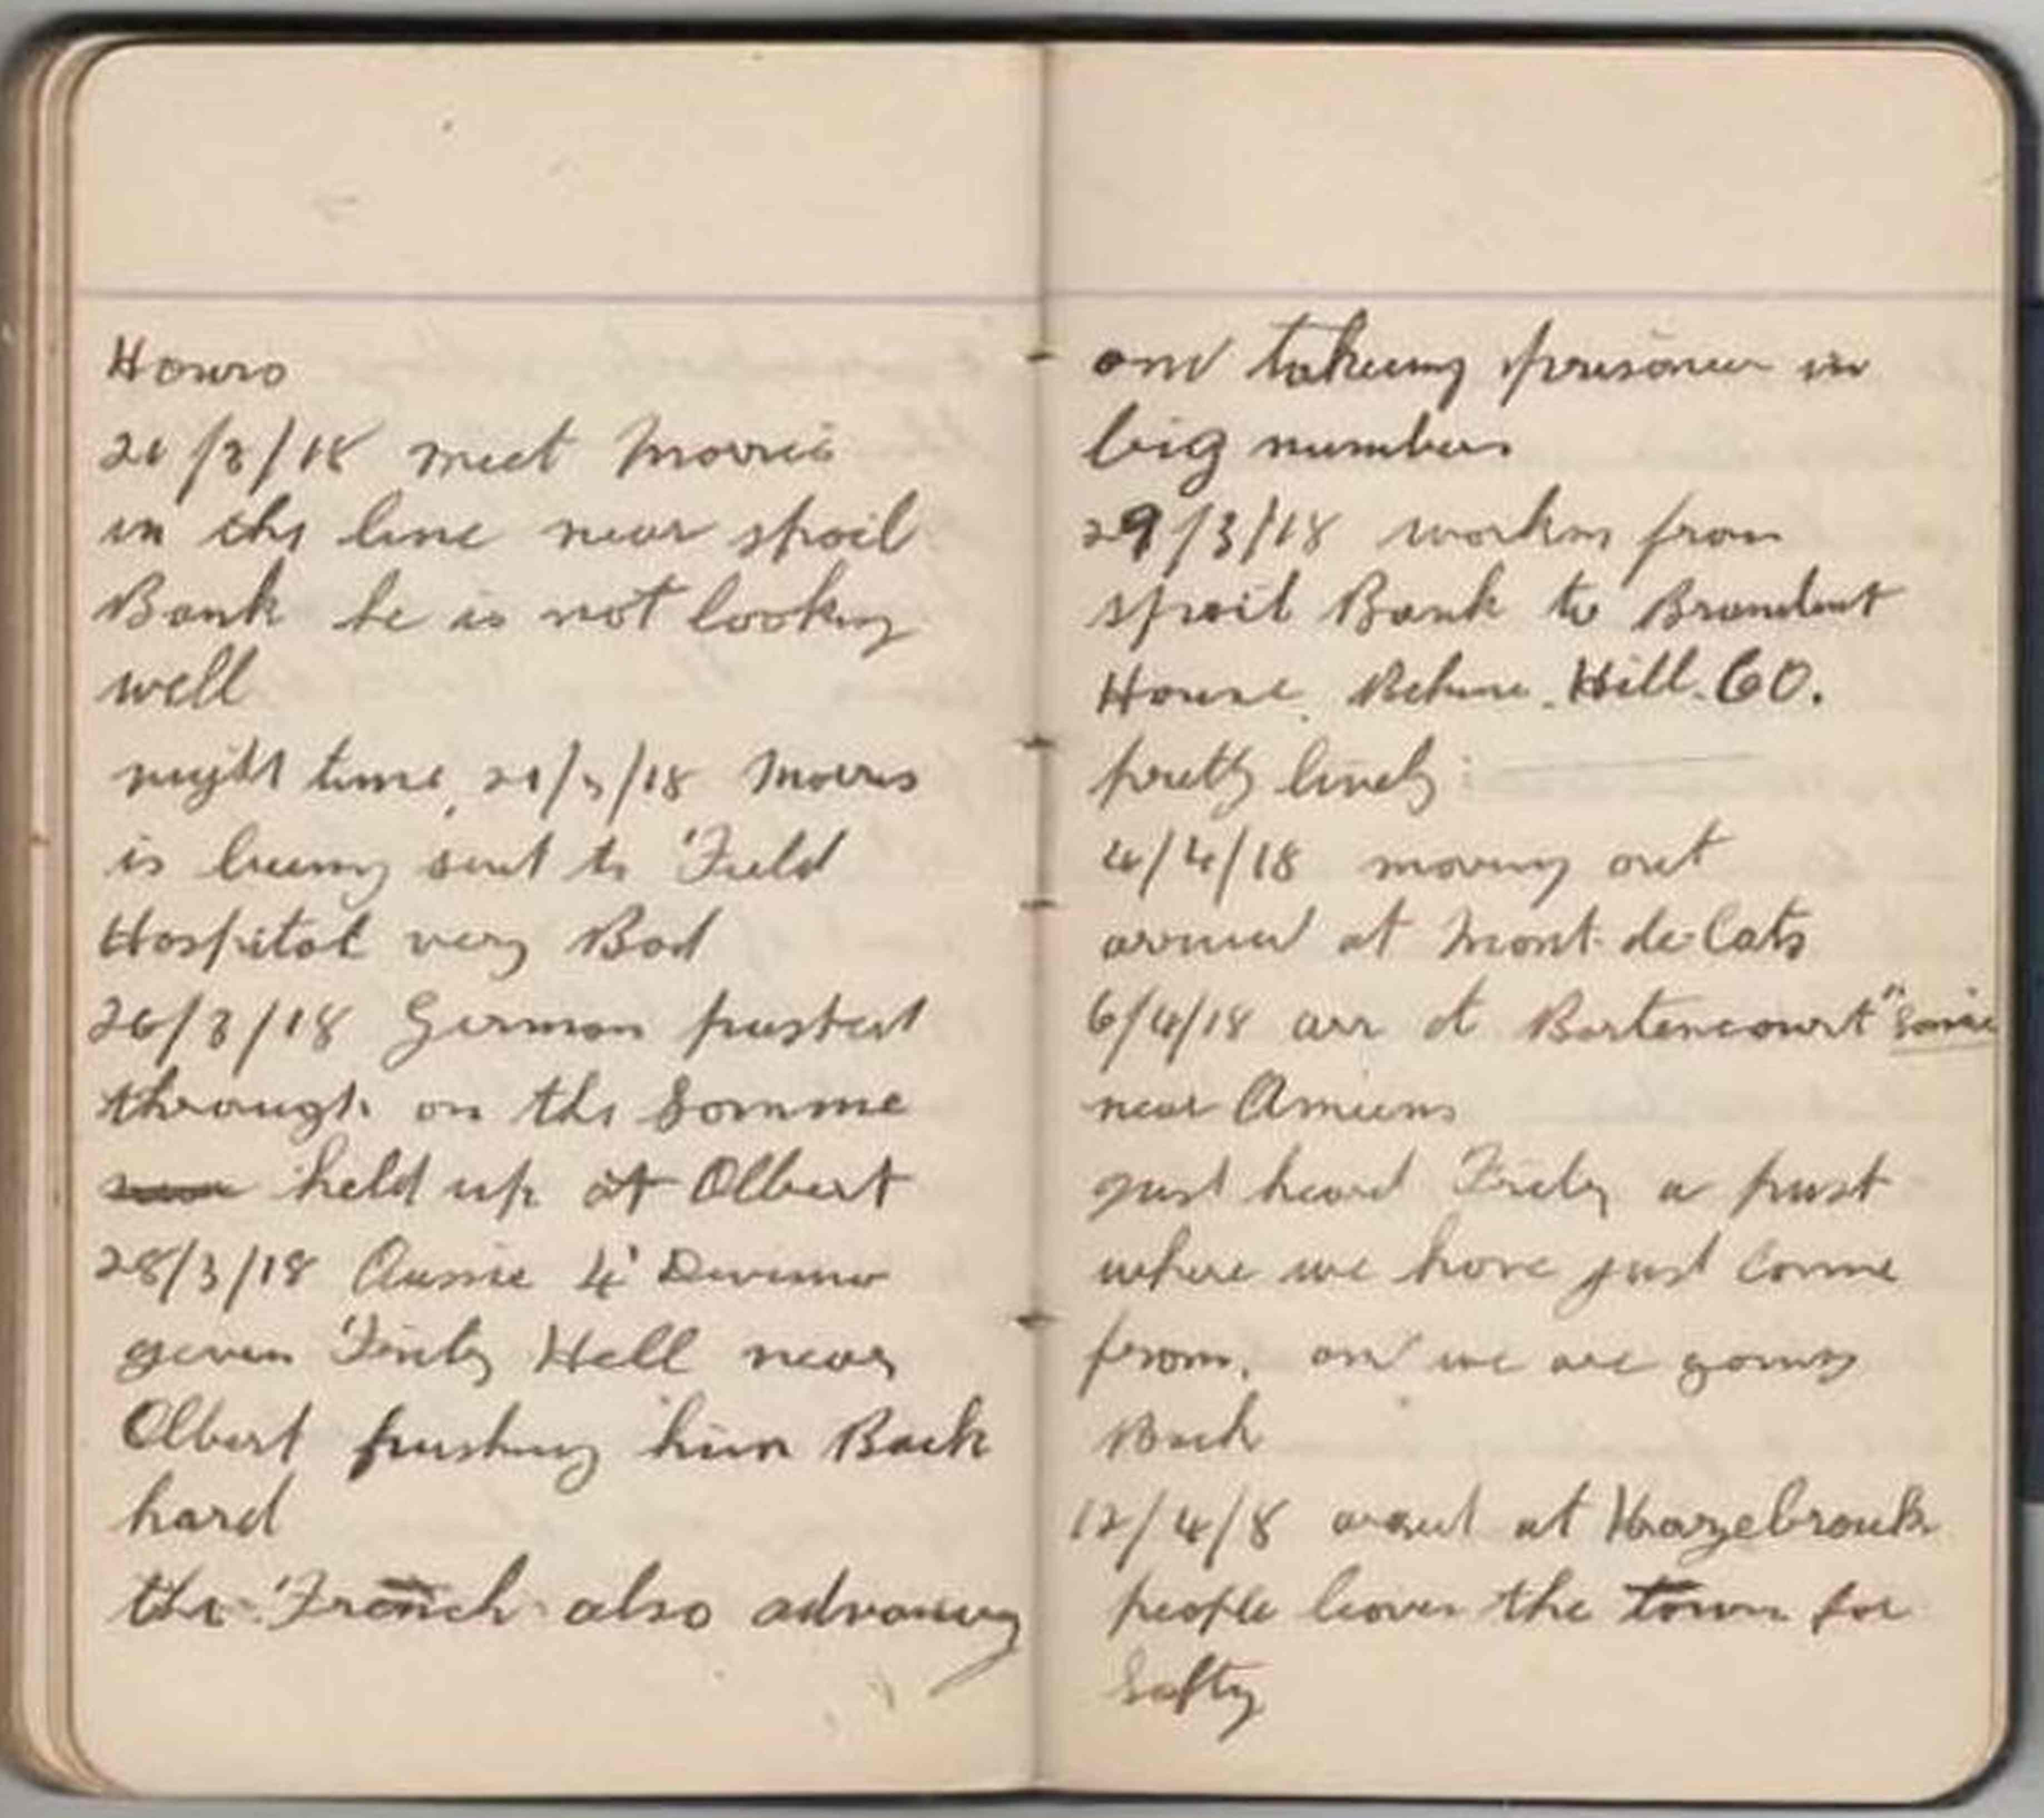 Hours
21/3/18 meet Morris
in the line near spoil
Bank he is not looking
well
night time, 21/3/18 Morris
is being sent to Field
Hospital very Bad
26/3/18 German pushed
through on the Somme
held up at Albert
28/3/18 Aussie 4' Division
given Fritz Hell near
Albert pushing him Back
hard
the French also advancing
and takeing prisoner in
big numbers
29/3/18 workin from
spoil Bank to
House. Behine. Hill. 60.
pretty lively
4/4/18 moving out
arrived at Mont-de-Cats
6/4/18 arr at Bertencourt
near Amiens
just heard Fritz a push
where we have just Come
from. and we are going
Back
12/4/8 at Hazebrouk
people leaven the town for
Safty